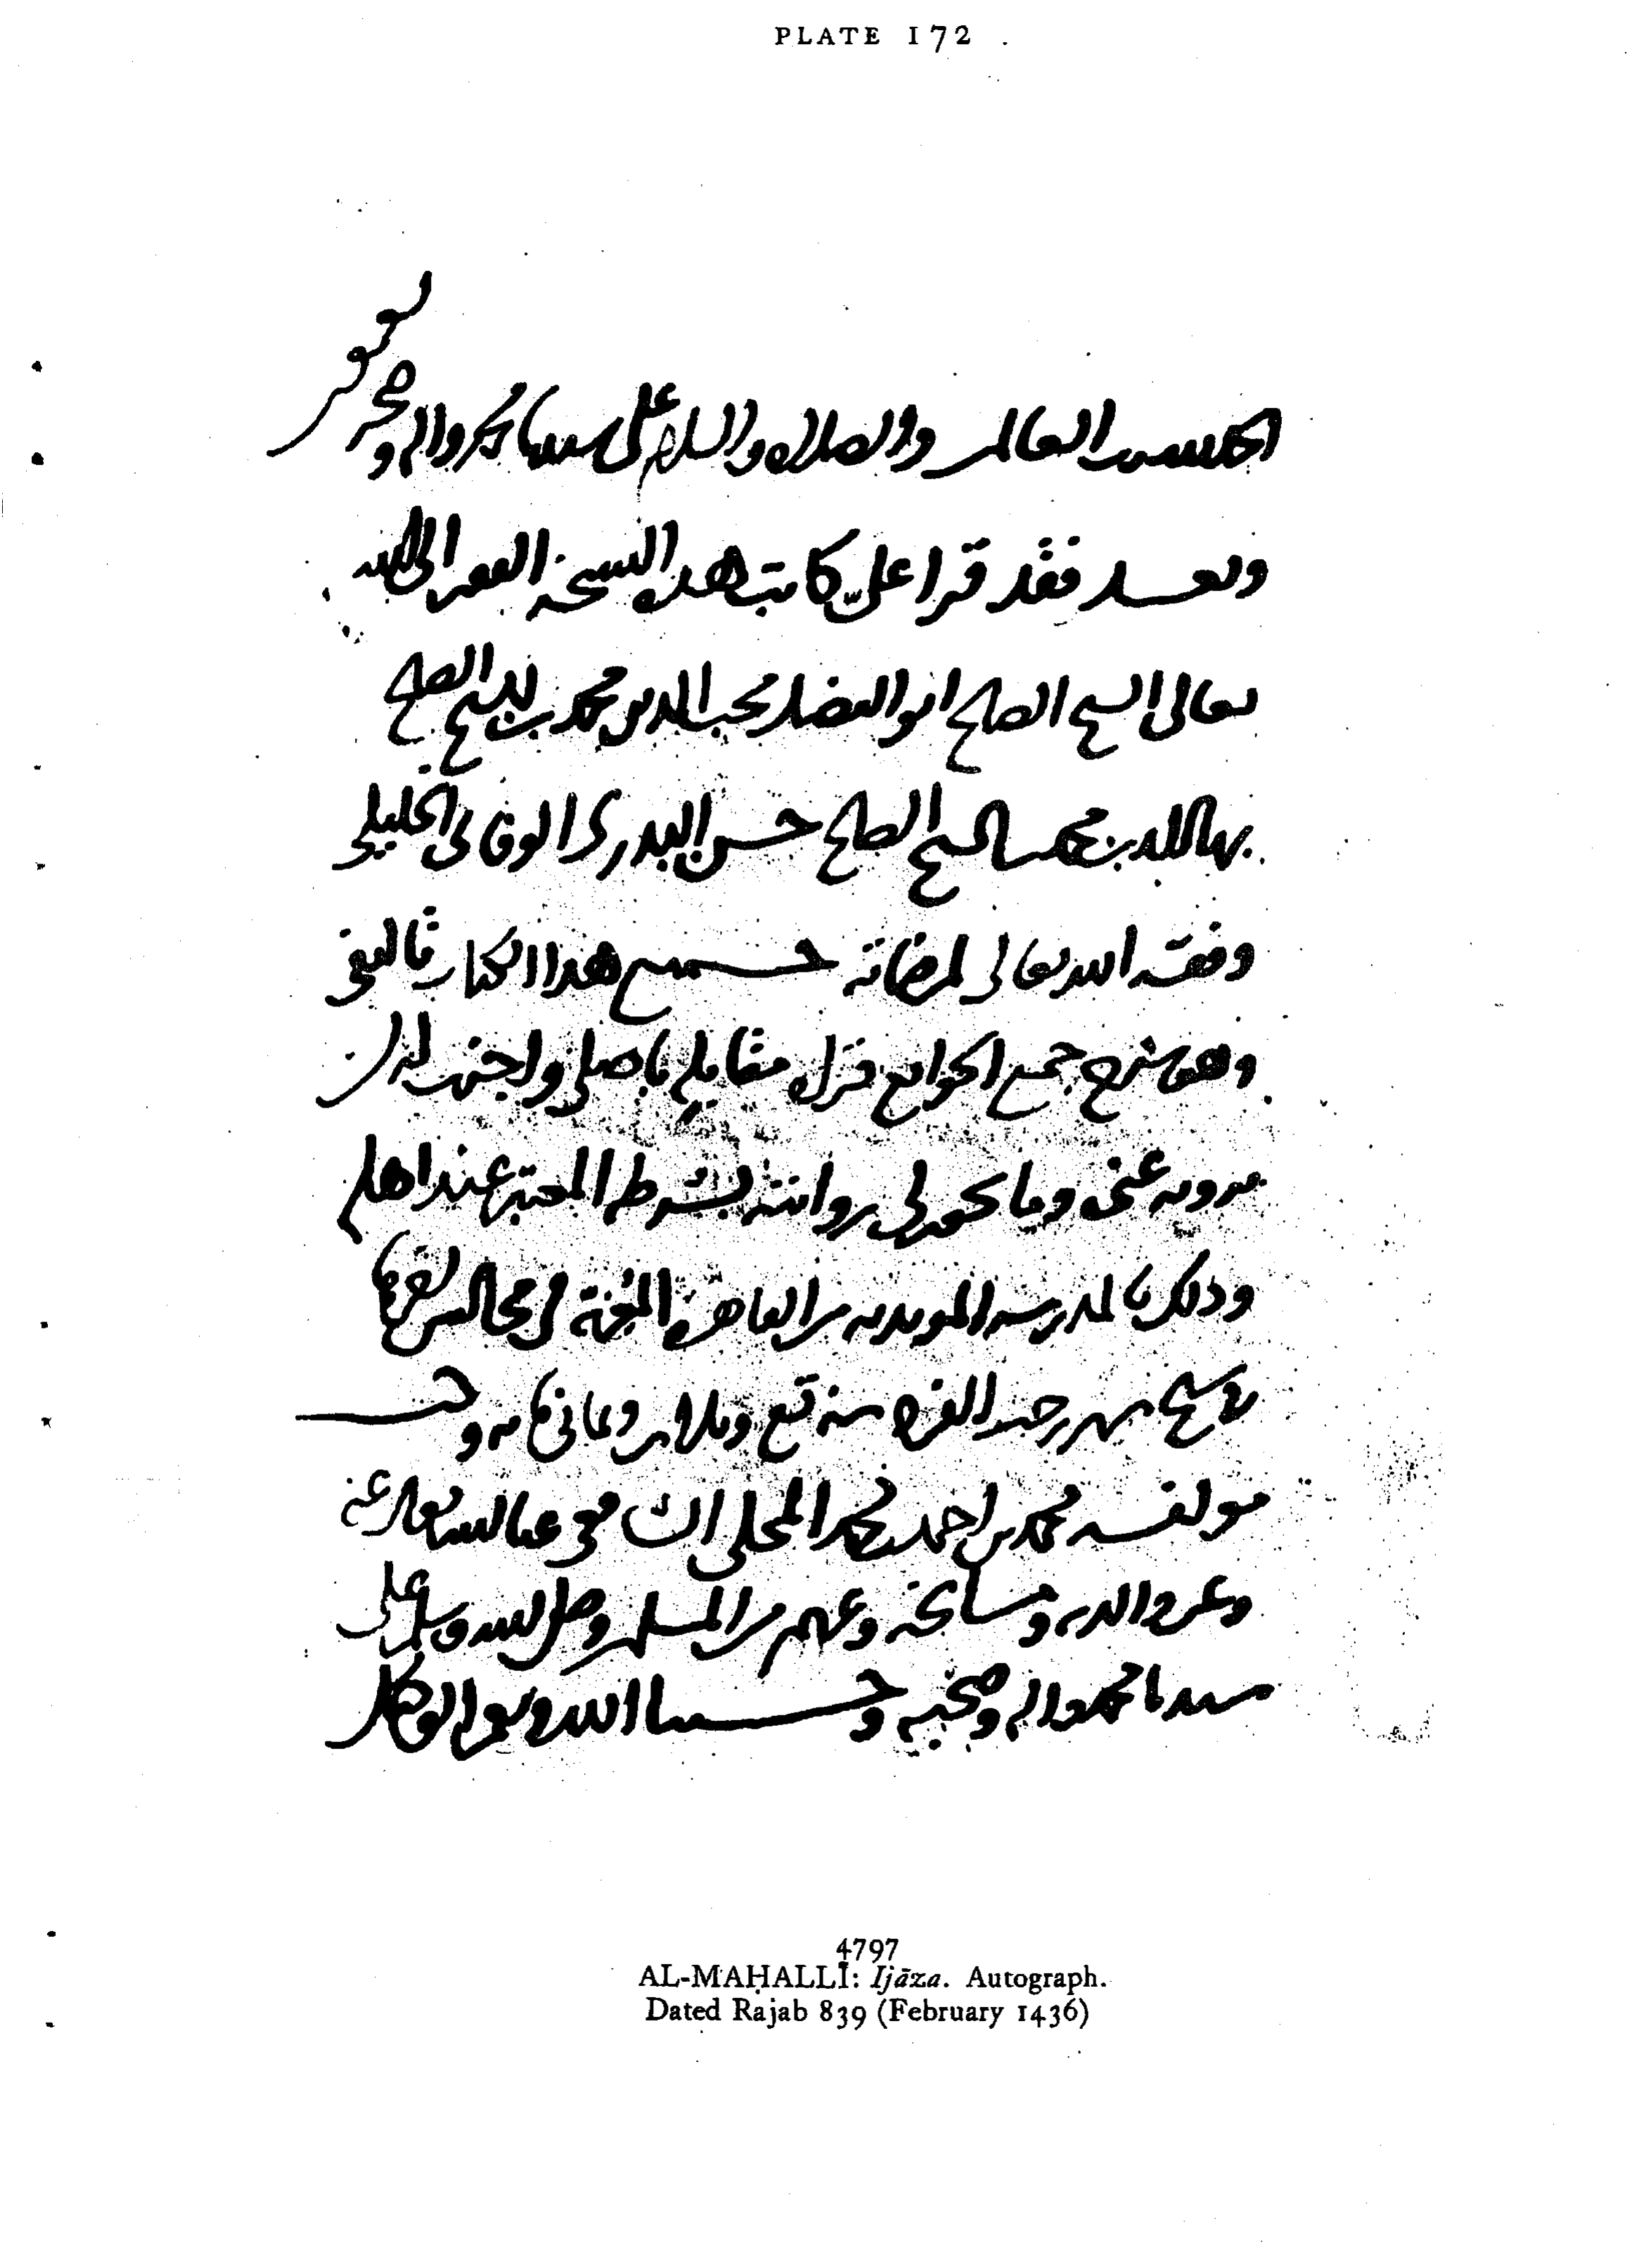 PLATE 172
الحمد لله رب العالمين والصلاة والسلام على سيدنا محمد واله وصحبه
وبعد فقد قرا عليّ كاتب هذه النسخة الفقير الى الله
تعالى الشيخ الصالح ابو الفضل محب الدين محمد بن الشيخ الصالح
بها الدين محمد بن الشيخ الصالح حسن البدري الوفائي الخليلي
وفقه الله تعالى لمرضاته جميع هذا الكتاب تاليفي
وهو شرح جمع الجوامع قراة مقابلة باصلي واجزت له ان
يرويه عني وما يجوز لي روايته بشرطه المعتبر عند اهله
وذلك بالمدرسة المويدية من القاهرة المعزية في مجالس اخرها
تاسع شهر رجب الفرد سنة تسع وثلاثين وثمانمائة وكتب
مولفه محمد بن احمد بن محمد المحلي الشافعي عفا الله تعالى عنه
وعن والديه ومشايخه وغيرهم من المسلمين وصلى الله وسلم على
سيدنا محمد واله وصحبه وحسبنا الله ونعم الوكيل
4797
AL-MAḤALLĪ: Ijāza. Autograph.
Dated Rajab 839 (February 1436)